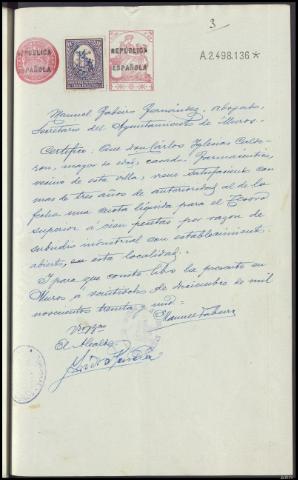 3
REPUBLICA
ESPAÑOLA
REPUBLICA
ESPAÑOLA
A.2.498.136*
Manuel Fabeiro Fernández, abogado,
Secretario del Ayuntamiento de Muros.
Certifico: Que don Carlos Iglesias
mayor de edad, casado, Farmacéutico,
vecino de esta villa, viene satisfaciendo con
mas de tres años de anterioridad al de la
fecha una cuota líquida para el Tesoro
superior a cien pesetas por razon de
subsidio industrial con establecimiento
abierto, en esta localidad.
Y para que conste libro la presente en
Muros a veintidos de diciembre de mil
novecientos treinta y uno =
Manuel Fabeiro
El Alcalde